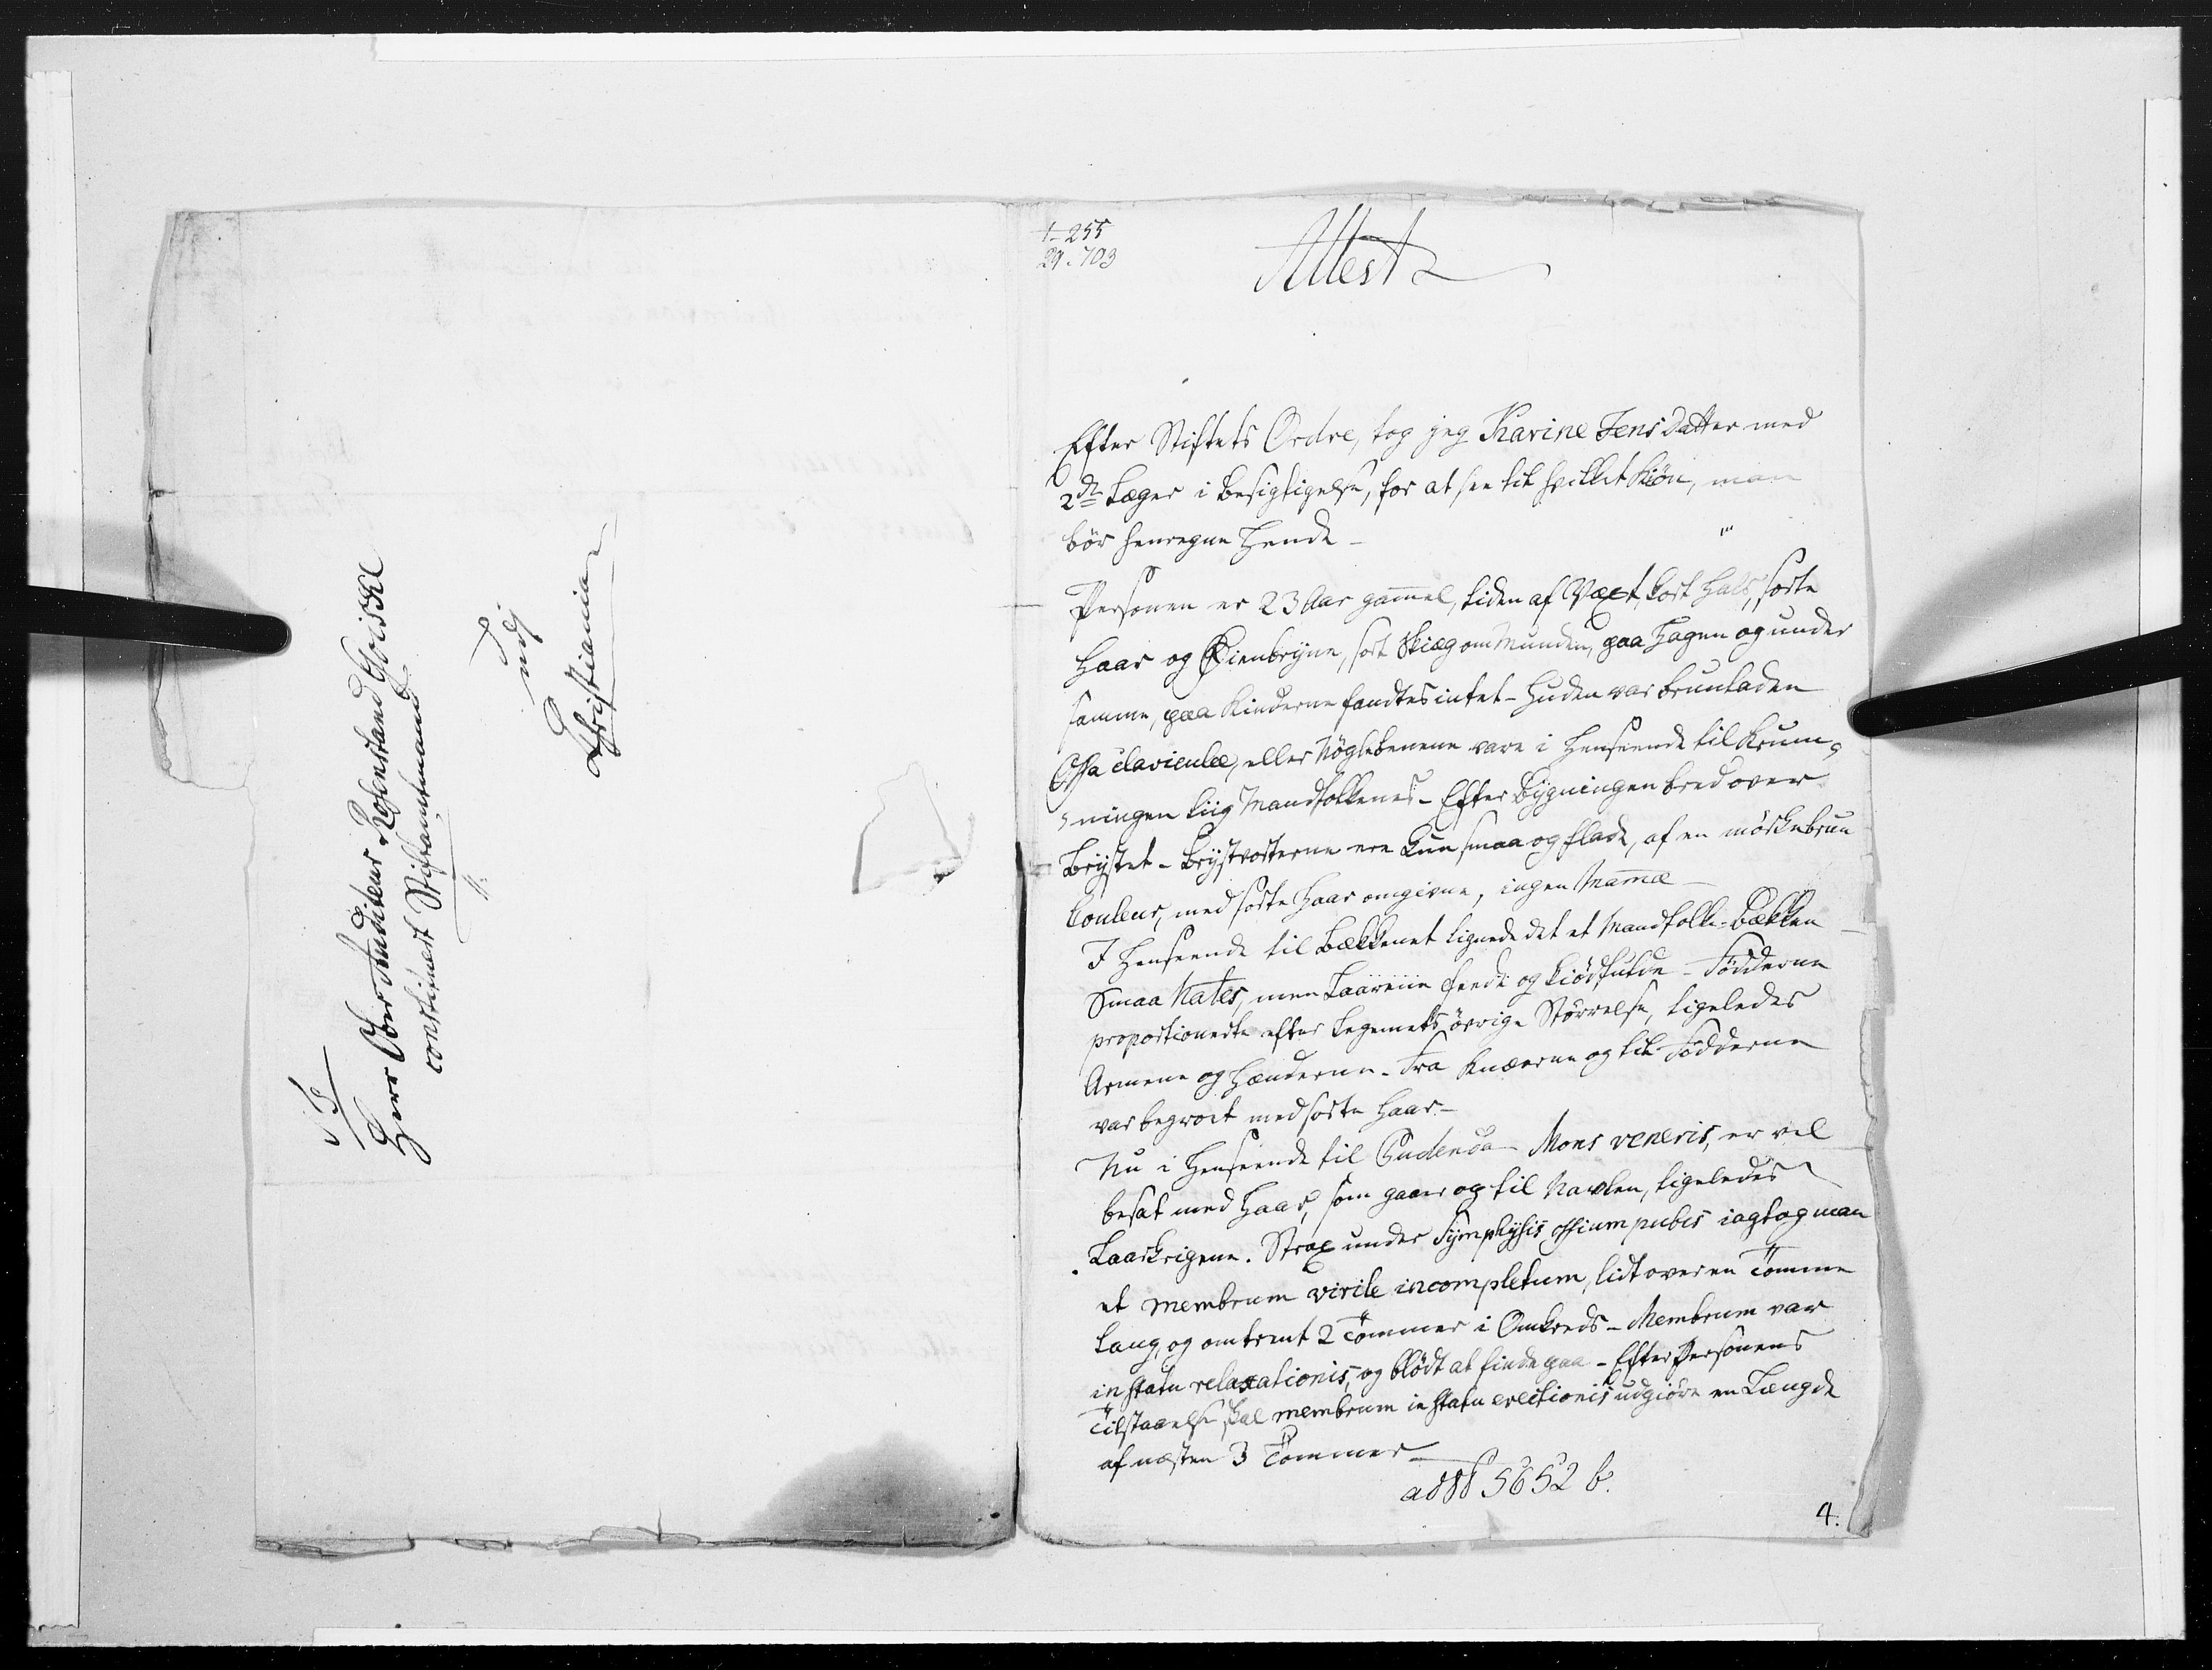 Til
Herr Ober Auditeur Rosenstand Goiskel
constitueret Stiftamtmand
udj
Christiania
1-255
29.703
Attest
Efter Stiftets Ordre, tog jeg Karine Jens Datter med
2de Læger i besigtigelse, for at see til hvilket Kiön, man
bör henregne hende -
Personen er 23 Aar gammel, liden af Væxt, kort hals, sorte
haar og Øienbrÿne, sort Skiæg om Munden, paa Hagen og under
samme, paa Kinderne fandtes intet - huden var brunladen
Ossa claviculæ, eller Nöglebenene vare i henseende til Krum,,
,,ningen liig Mandfolkenes - Efter bÿgningen bred over
brÿstet - brÿstvorterne ere kun smaa og flade, af en mörkebrun
Couleur, med sorte haar omgivne, ingen Mamæ
I henseende til bekkenet lignede det et Mandfolke-bækken
Smaa Nates, men Laarene feede og kiödfulde - Födderne
proportionerte efter legemets övrige Störrelse, ligeledes
Armene og hænderne - Fra Knæerne og til Födderne
var begroet med sorte haar -
Nu i henseende til Pudenda - Mons veneris, er vel
besat med haar, som gaar op til Navlen, ligeledes
Laarkrigene. Strax under Sÿmphÿsis ossium pubis iagtog man
et membrum virile incompletum, lidt over en Tomme
lang, og omtrent 2 Tommer i Omkreds - Membrum var
in statu relaxationis, og blödt at finde paa - Efter Personens
Tilstaaelse, skal membrum in statu erectionis udgiöre en Længde
af næsten 3 Tommer
ad № 5652 b.
4.